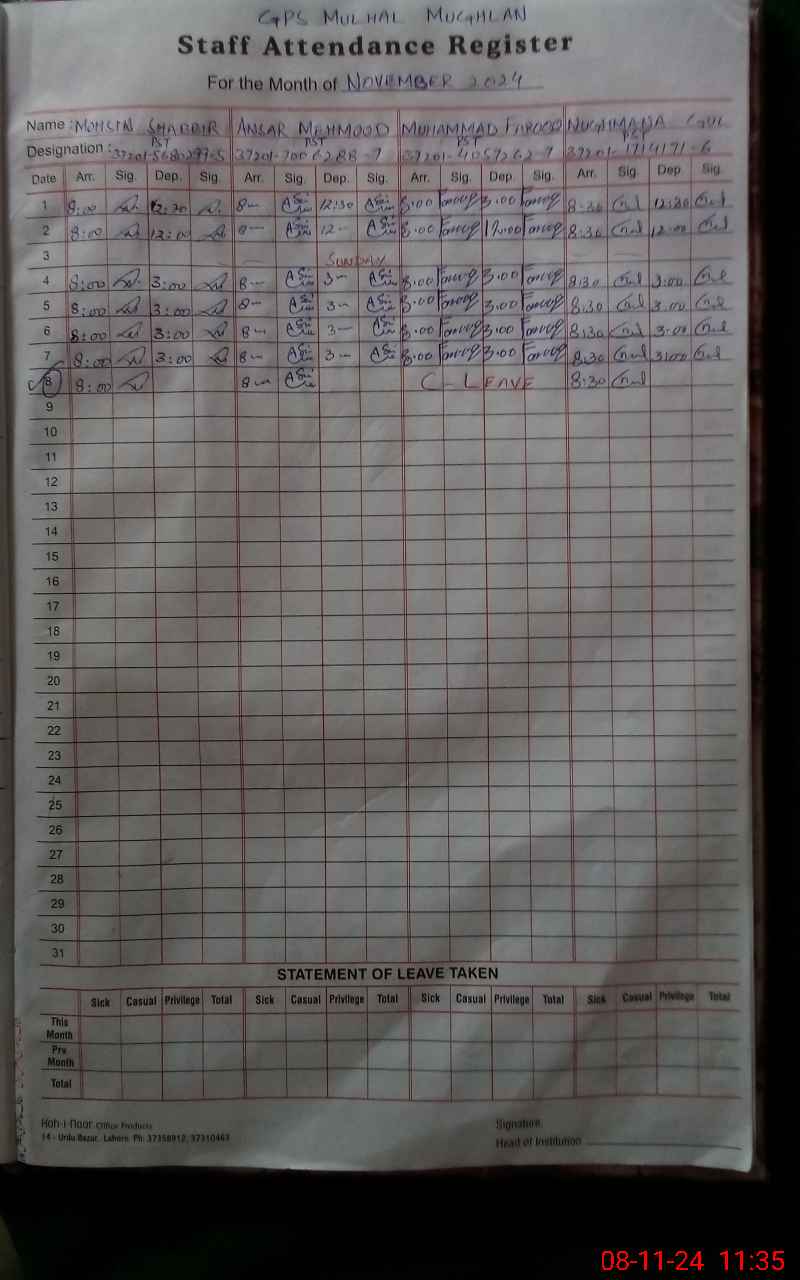 GPS MULHAL MUGHLAN
Staff Attendance Register
For the Month of NOVEMBER 2024
Name: MOHSIN SHABBIR ANSAR MEHMOOD MUHAMMAD FAROOQ NUGHMANA GUL
PST PST PST PST
Designation: 37201-7006288-7 37201-4057262-7 37201-1714171-6
Date Arr. Sig. Dep. Sig. Arr. Sig. Dep. Sig. Arr. Sig. Dep. Sig. Arr. Sig. Dep. Sig.
1 8:00 12:30 8 12:30 8:00 Farooq 3:00 Farooq 8:30 Gul 12:30 Gul
2 8:00 12:00 8 12 8:00 Farooq 12:00 Farooq 8:30 Gul 12:00 Gul
3 SUNDAY
4 8:00 3:00 8 3 8:00 Farooq 3:00 Farooq 8:30 Gul 3:00 Gul
5 8:00 3:00 8 3 8:00 Farooq 3:00 Farooq 8:30 Gul 3:00 Gul
6 8:00 3:00 8 3 8:00 Farooq 3:00 Farooq 8:30 Gul 3:00 Gul
7 8:00 3:00 8 3 8:00 Farooq 3:00 Farooq 8:30 Gul 3:00 Gul
8 8:00 8 C-LEAVE 8:30 Gul
9
10
11
12
13
14
15
16
17
18
19
20
21
22
23
24
25
26
27
28
29
30
31
STATEMENT OF LEAVE TAKEN
Sick Casual Privilege Total Sick Casual Privilege Total Sick Casual Privilege Total Sick Casual Privilege Total
This
Month
Prv
Month
Total
Koh-i-Noor Office Products
14 - Urdu Bazar, Lahore. Ph: 37358912, 37310463
Signature
Head of Institution
08-11-24 11:35